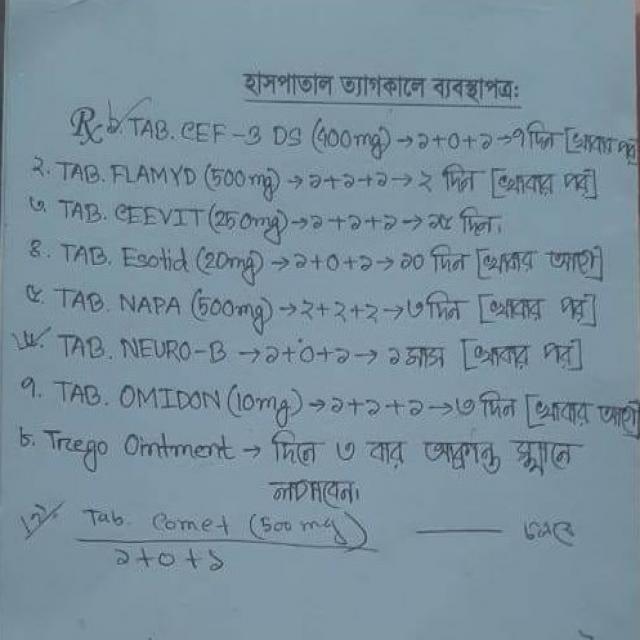 হাসপাতাল ত্যাগকালে ব্যবস্থাপত্র:
Rx ১. TAB. CEF-3 DS (400mg) → ১+০+১ → ৭ দিন [খাবার পর]
২. TAB. FLAMYD (500mg) → ১+১+১ → ২ দিন [খাবার পর]
৩. TAB. CEEVIT (250mg) → ১+১+১ → ১৫ দিন।
৪. TAB. Esotid (20mg) → ১+০+১ → ১০ দিন [খাবার আগে]
৫. TAB. NAPA (500mg) → ২+২+২ → ৩ দিন [খাবার পর]
৬. TAB. NEURO-B → ১+০+১ → ১ মাস [খাবার পর]
৭. TAB. OMIDON (10mg) → ১+১+১ → ৩ দিন [খাবার আগে]
৮. Trego Ointment → দিনে ৩ বার আক্রান্ত স্থানে
লাগাবেন।
Tab. Comet (500 mg) — চলবে
১+০+১